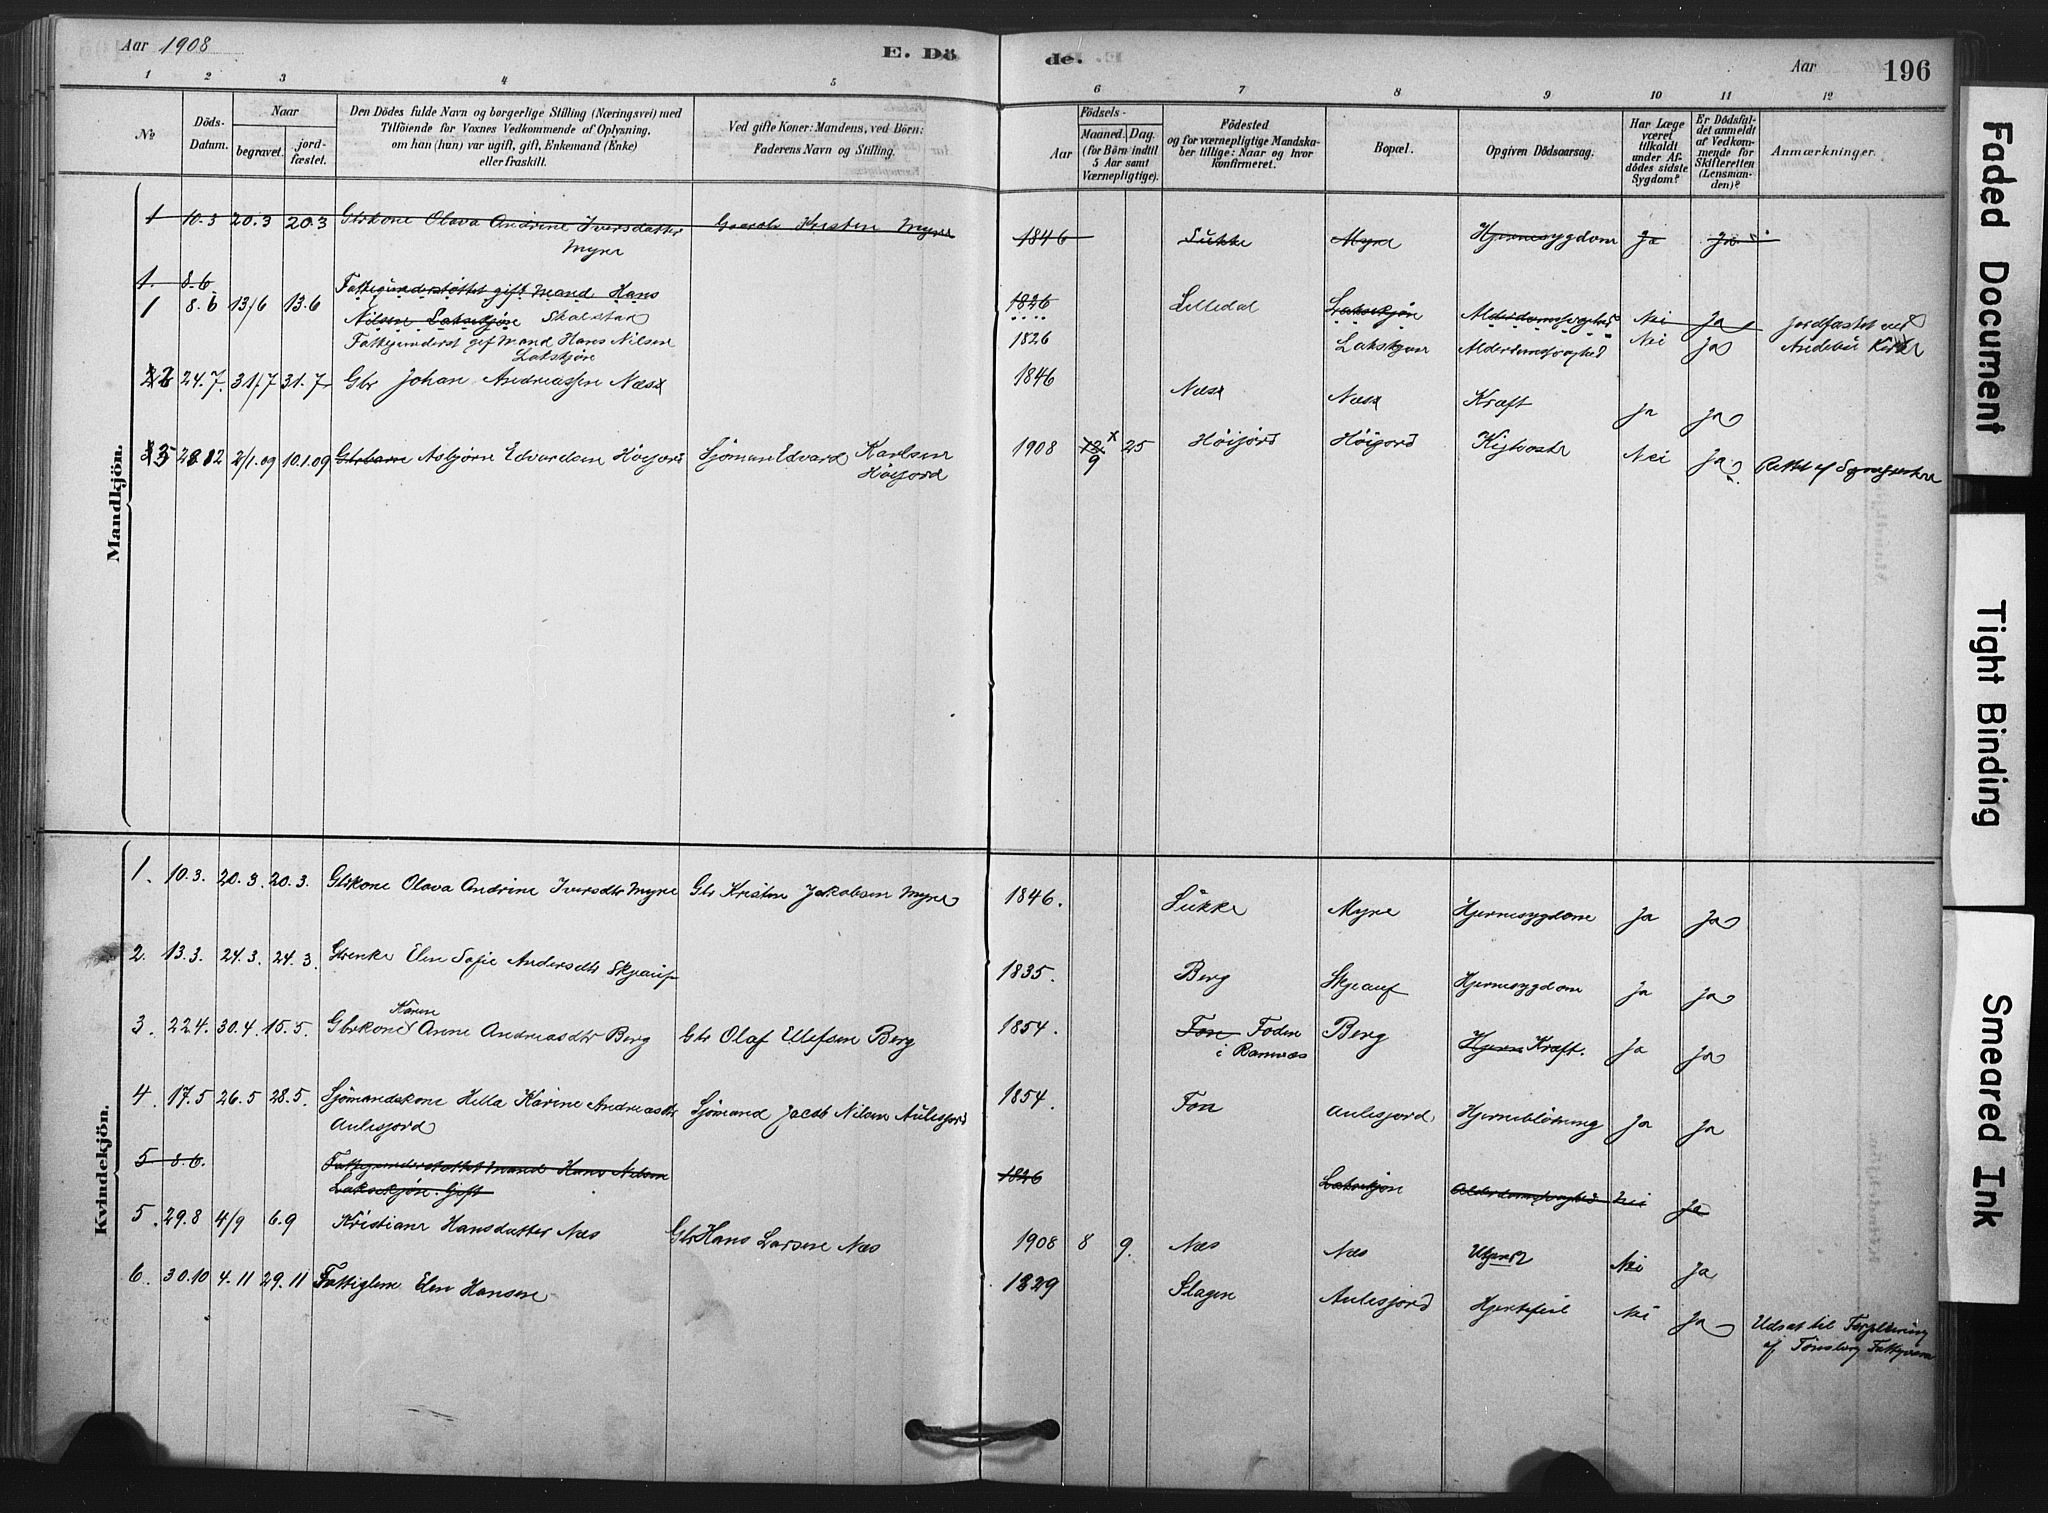 Aar 1908
E. Dö
de.
Aar
196
1 2 3 4 5 6 7 8 9 10 11 12
No
Döds-Datum.
Naar
begravet.
jord-fæstet.
Den Dödes fulde Navn og borgerlige Stilling (Næringsvei) med
Tilföiende for Voxnes Vedkommende af Oplysning,
om han (hun) var ugift, gift, Enkemand (Enke)
eller fraskilt.
Ved gifte Koner: Mandens, ved Börn:
Faderens Navn og Stilling.
Födsels-
Aar
Maaned. Dag.
(for Börn indtil
5 Aar samt
Værnepligtige).
Födested
og for værnepligtige Mandska-
ber tillige: Naar og hvor
konfirmeret.
Bopæl.
Opgiven Dödsaarsag.
Har Læge
været
tilkaldt
under Af-
dödes sidste
Sygdom?
Er Dödsfal-
det anmeldt
af Vedkom-
mende for
Skifteretten
(Lensman-
den)?
Anmærkninger.
Mandkjön.
1 10.3 20.3 20.3 Gbrkone Olava Andrine Iversdatter Kristen Myre 1846 Sukke Myre Hjernesygdom Ja Ja
Myre
1. 8.6 Fattigunderstøttet gift Mand Hans 1826 Lilledal Laksekjøn Alderdomssvaghed Nei Ja Jordfæstet ved
1 8.6 13/6 13.6 Nilsen Laksekjøn
Fattigunderst gif Mand Hans Nilsen 1826 Lakskjøn Alderdomssvaghed Nei Ja Andebu Kirke
Lakskjøn
2 24.7. 31/7 31.7 Gbr Johan Andreassen Næs 1846 Næs Næs Kræft Ja Ja
3 28.12 2/1.09 10.1.09 Gbrbarn Asbjørn Edvardsen Høijord Sjømand Edvard Karlsen 1908 12 x 25 Høijord Høijord Kighoste Nei Ja Rettet af Sogneprest
9
Høijord
Kvindekjön.
1. 10.3. 20.3. 20.3. Gbrkone Olava Andrine Iversdtr Myre Gbr Kristen Jakobsen Myre 1846. Sukke Myre Hjernesygdom Ja Ja
2. 13.3. 24.3. 24.3. Gbrenke Elen Sofie Andersdtr Skjeauf 1835. Berg Skjeauf Hjernesygdom Ja Ja
Karen
3. 22.4. 30.4. 15.5. Gbrkone Anne Andreasdtr Berg Gbr Olaf Ellefsen Berg 1854. Fon Foden Berg Hjern Kræft. Ja Ja
i Ramnæs
4. 17.5 26.5 28.5. Sjømandskone Hella Karine Andreasdtr Sjømand Jacob Nilsen Aulesjord 1854. Fon Aulesjord Hjerneblødning Ja Ja
Aulesjord
5 8.6. Fattigunderstøttet Mand Hans Nilsen 1826 Laksekjøn Alderdomssvaghed Nei Ja
Laksekjøn. Gift
5. 29.8 4/9 6.9 Kristiane Hansdatter Næs Gbr Hans Larsen Næs 1908 8 9. Næs Næs Nei Ja
6. 30.10 4.11 29.11 Fattiglem Elen Hansen 1829 Slagen Aulesjord Hjertefeil Nei Ja Udsat til Forpleining
af Tønsberg Fattigvæsen
Faded Document
Tight Binding
Smeared Ink